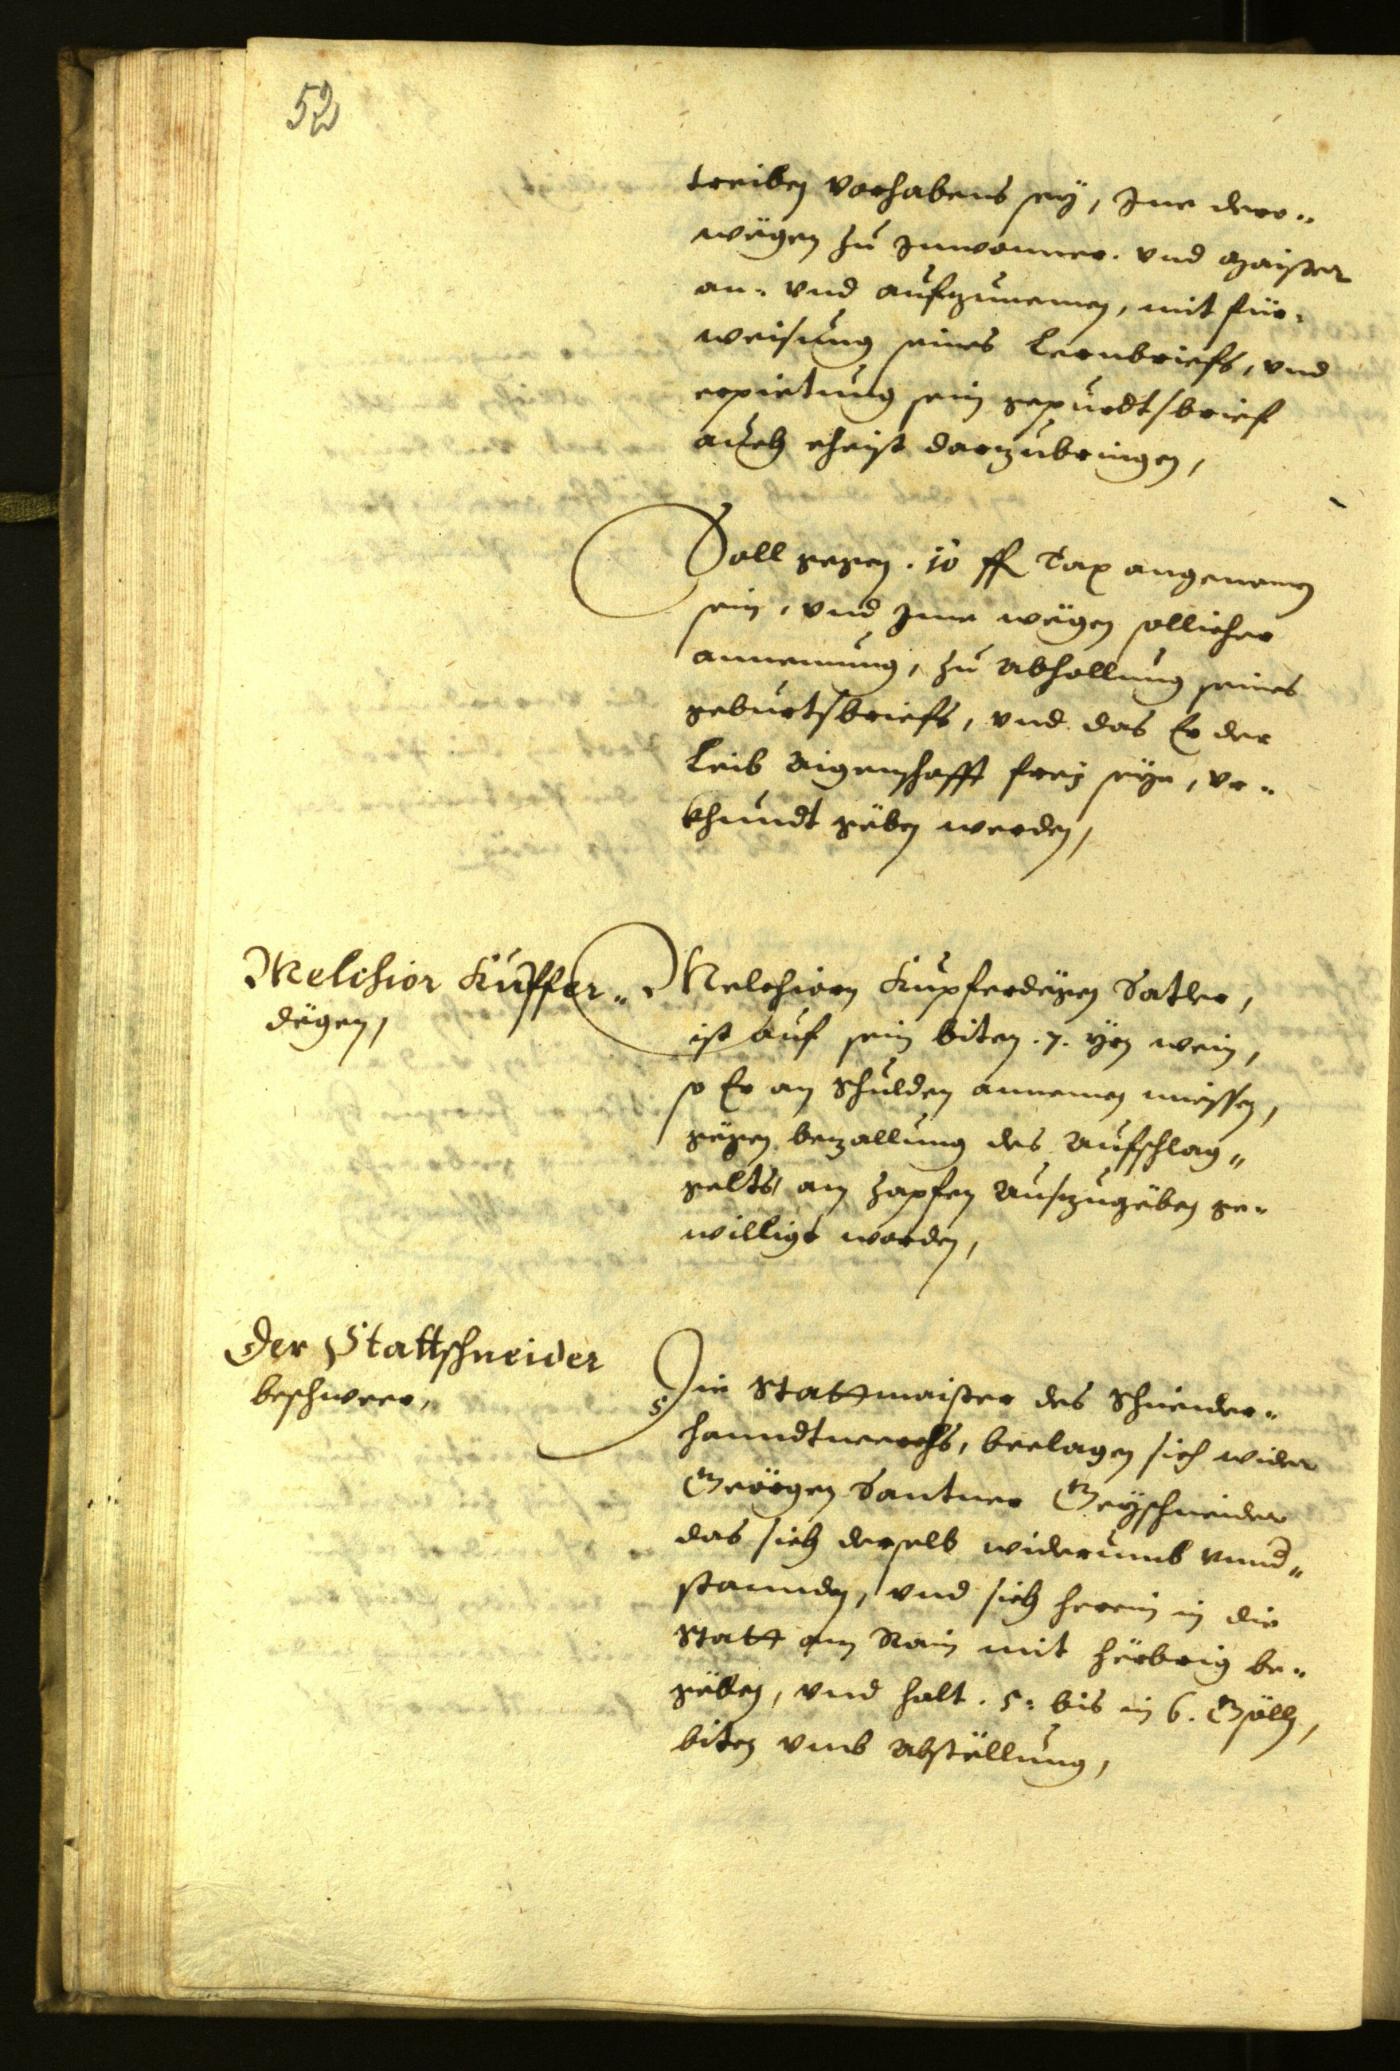 52
treiben vorhabens sey, Ine dero-
wëgen zu Inwonner. vnd Maister
an- vnd aufzunemen, mit für-
weisung seines Lernbriefs, vnd
erpietung sein gepurdtsbrief
auch ehist darzubringen,
Soll gegen . 10 ff Tax angenomen
sein, vnd Ime wëgen sollicher
annemung, zu Abhollung seines
geburtsbriefs, vnd das Er der
Leib Aigenschafft frey seye, vr-
khundt gëben werden,
Melchior Kupffer-
dëgen,
Melchiorn Kupferdëgen Satler,
ist auf sein biten . 7 . Yrn wein,
so Er an Schulden annemen miessen,
gëgen bezallung des Aufschlag-
gelts, am Zapfen Auszugëben ge-
willigt worden,
Der Stattschneider
beschweer,
Die Stattmaister des Schneider-
hanndtwerchs, beclagen sich wider
Geörgen Santner Geyschneider
das sich derselb widerumb vnnd-
stannden, vnd sich herein in die
Statt am Rain mit hërbrig be-
gëben, vnd halt . 5. bis in 6. Gsölln,
biten vmb Abstëllung,